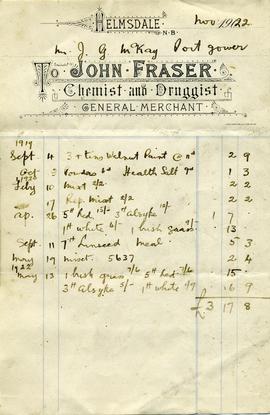 HELMSDALE
N.B.
Nov 1922
Mr. J. G. McKay Portgower
To JOHN FRASER,
Chemist and Druggist
GENERAL MERCHANT.
1919
Sept 4 3 tins Walnut Paint @ 11d 2 9
Oct 3 Powders 6d Health Salt 9d 1 3
1920
Feby 10 Mixt 2/2 2 2
17 Rep. Mixt 2/2 2 2
Ap. 26 5 lb Red 15/- 3 lb Alsyke 1 7
1 lb white 6/- 1 bush grass 13
Sept. 11 7 lb Linseed Meal 5 3
19 5637 2 4
1922
May 13 1 bush grass 7/6 5 lb Red 7/6 15
3 lb Alsyke 1 lb white 16 9
£3 17 8